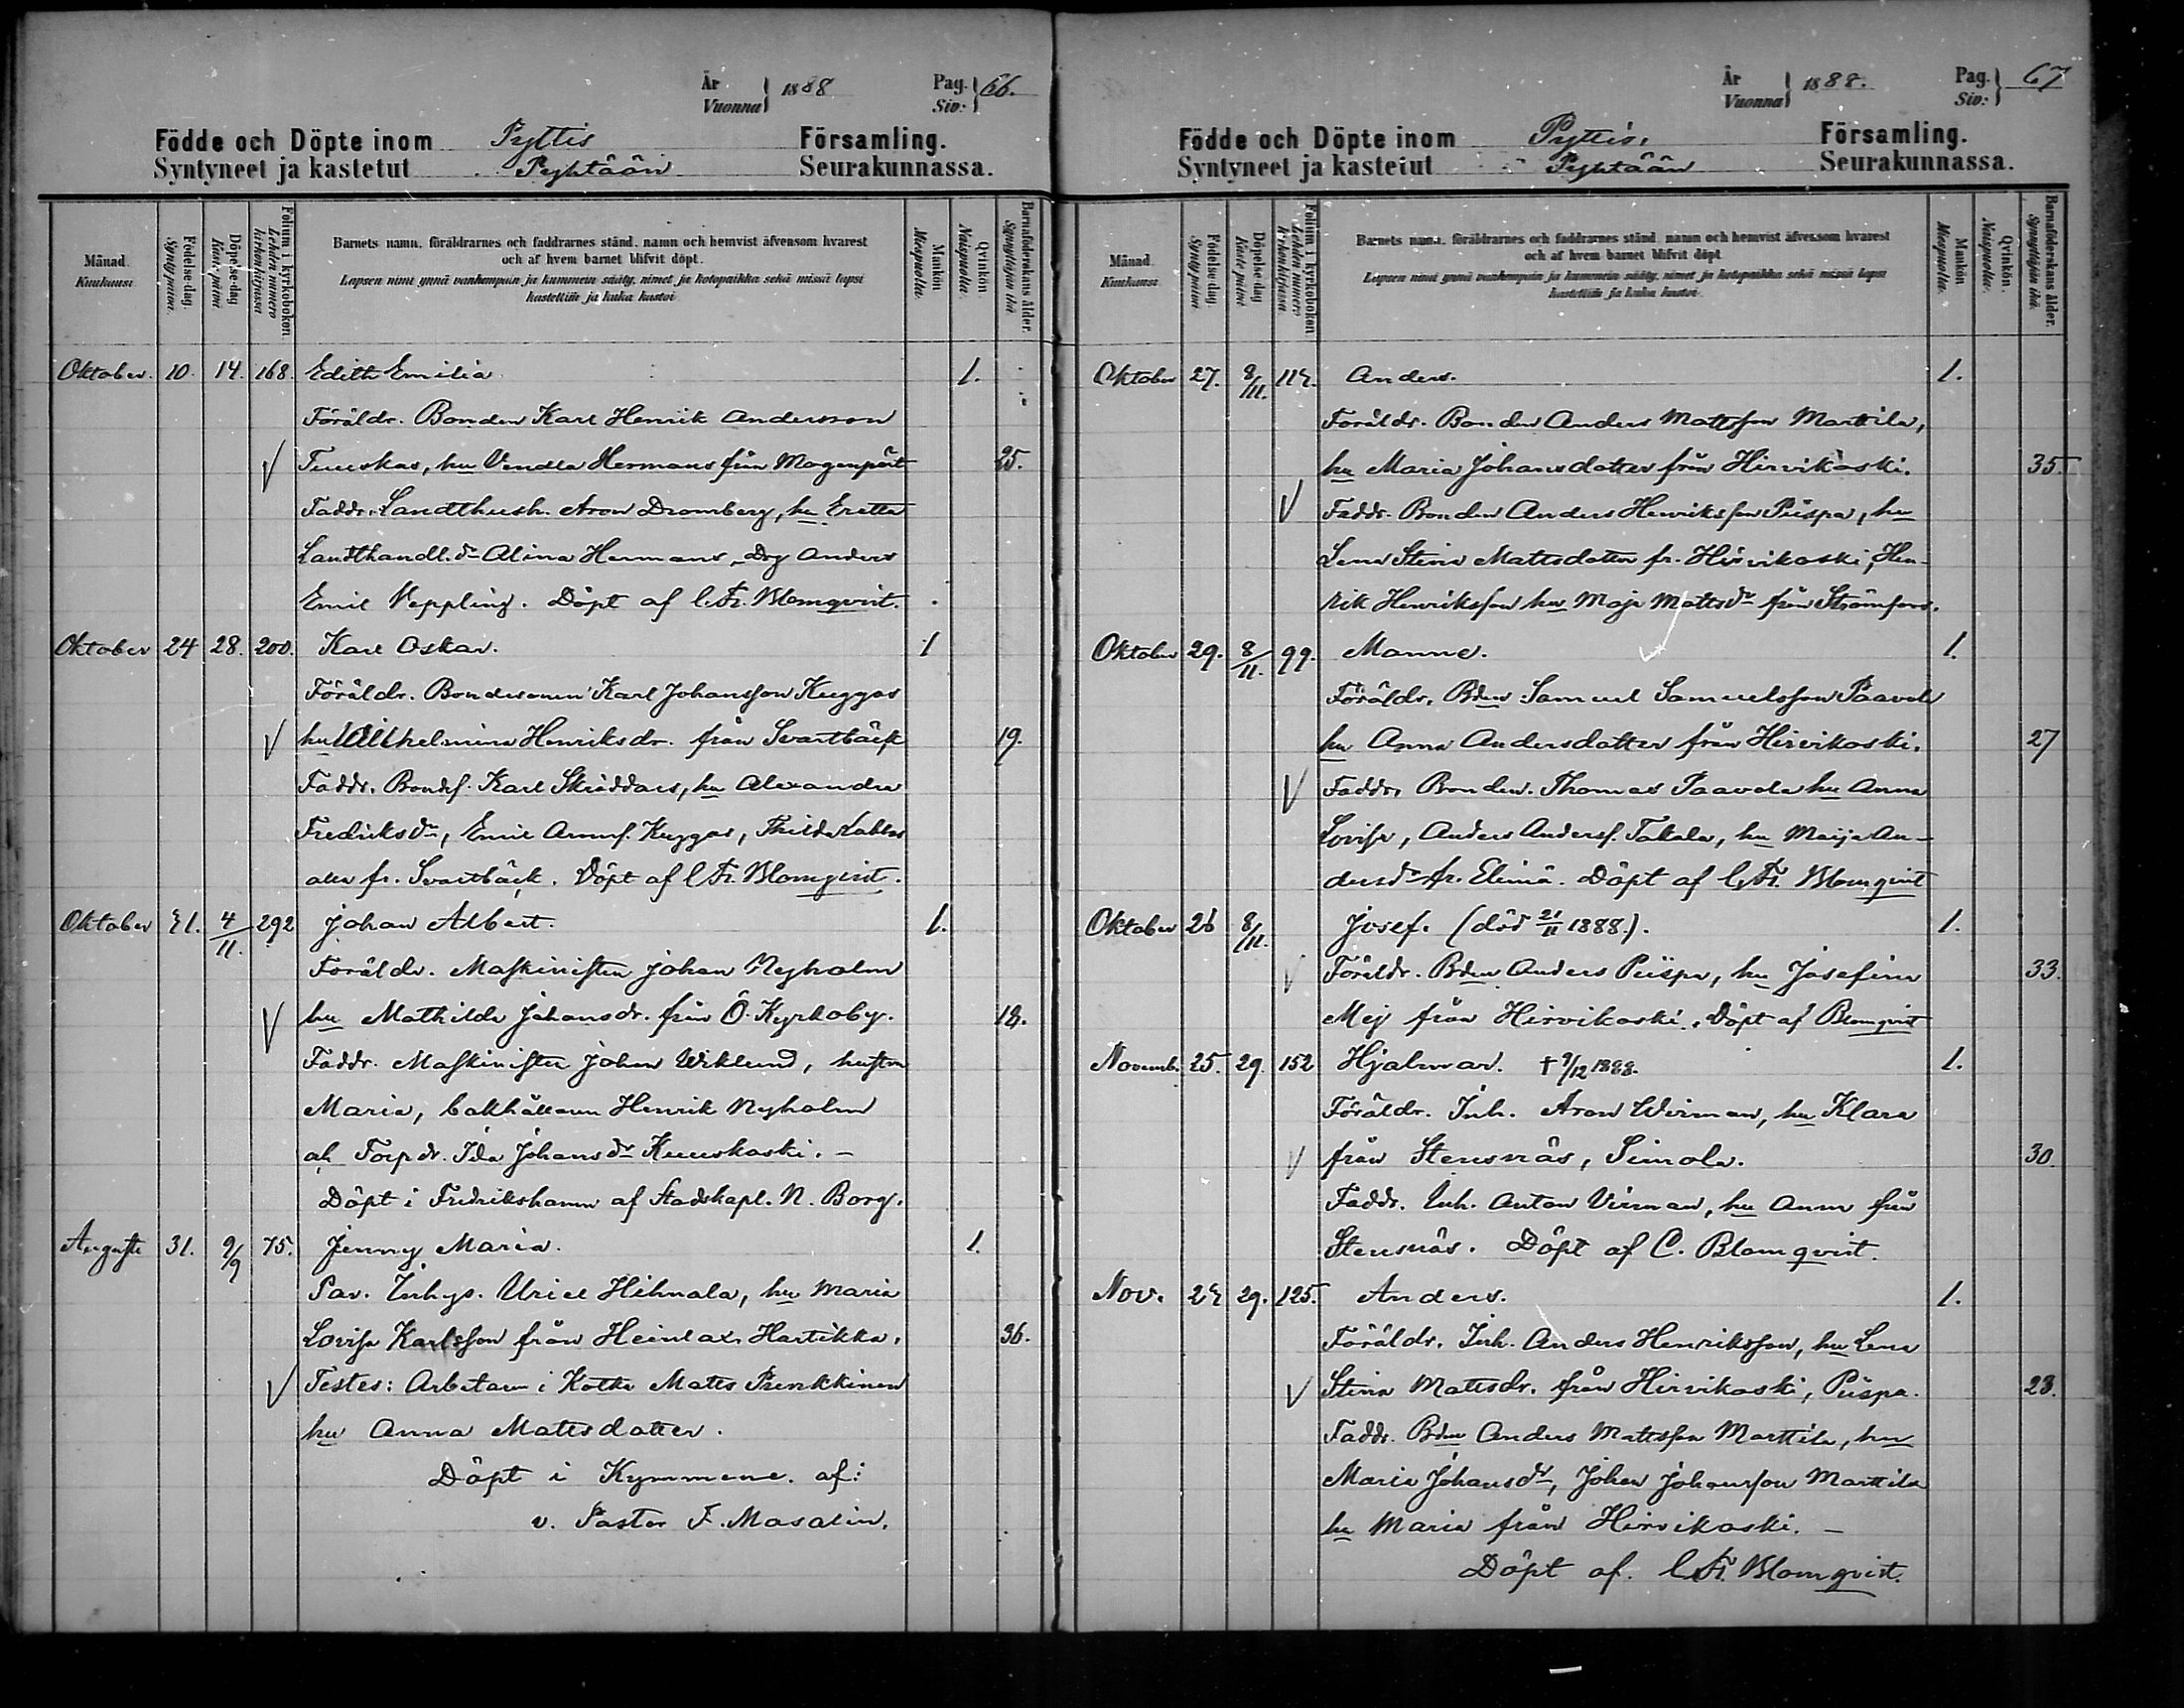 År
Vuonna 1888 Pag.
Siv: 66.
Födde och Döpte inom Pyttis Församling.
Syntyneet ja kastetut Pyhtään Seurakunnassa.
Månad.
Kuukausi.
Födelse-dag.
Syntypäivä.
Döpelse-dag
Kaste-päivä
Folium i kyrkoboken
Lehden numero
kirkonkirjassa
Barnets namn, föräldrarnes och faddrarnes stånd, namn och hemvist äfvensom hvarest
och af hvem barnet blifvit döpt.
Lapsen nimi ynnä vanhempain ja kummein sääty, nimet ja kotopaikka sekä missä lapsi
kastettiin ja kuka kastoi.
Mankön
Miespuolia.
Qvinkön.
Naispuolia.
Barnaföderskans ålder.
Synnyttäjän ikä.
Oktober. 10. 14. 168. Edith Emilia 1.
Föräldr. Bonden Karl Henrik Andersson
Tuuskas, hu Vendla Hermans från Mogenpört 25.
Faddr. Landthush. Aron Dromberg, hu Eretta
Landthandl. dr Alina Hermans, Drg Anders
Emil Veppling. Döpt af C. Fr. Blomqvist.
Oktober 24 28. 200. Karl Oskar. 1
Föräldr. Bondesonen Karl Johansson Kuggas
hu Wilhelmina Henriksdr. från Svartbäck 19.
Faddr. Bondes. Karl Skräddars, hu Alexandra
Fredriksdr, Emil Kuggas,
alla fr. Svartbäck. Döpt af C. Fr. Blomqvist.
Oktober 31. 4/11. 292 Johan Albert. 1.
Föräldr. Maskinisten Johan Nyholm
hu Mathilda Johansdr. från Ö. Kyrkoby.
Faddr. Maskinisten Johan Wiklund, hustru
Maria, Henrik Nyholm
och Torpdr. Ida Johansdr Kuuskoski. –
Döpt i Fredrikshamn af Stadskapl. N. Borg.
Augusti 31. 9/9 75. Jenny Maria. 1.
Par. Inhys. Uriel Hihnala, hu Maria
Lovisa Karlsson från Heinlax Hartikka. 36.
Testes: Arbetaren i Kotka Matts Prenkkinen
hu Anna Mattsdotter.
Döpt i Kymmene. af:
v. Pastor F. Masalin.
År
Vuonna 1888. Pag.
Siv: 67
Födde och Döpte inom Pyttis. Församling.
Syntyneet ja kastetut Pyhtään Seurakunnassa.
Månad
Kuukausi
Födelse-dag.
Syntypäivä
Döpelse-dag
Kaste-päivä
Folium i kyrkoboken
Lehden numero
kirkonkirjassa
Barnets namn, föräldrarnes och faddrarnes stånd, namn och hemvist äfvensom hvarest
och af hvem barnet blifvit döpt
Lapsen nimi ynnä vanhempain ja kummein sääty, nimet ja kotopaikka sekä missä lapsi
kastettiin ja kuka kastoi.
Mankön
Miespuolia.
Qvinkön.
Naispuolia.
Barnaföderskans ålder.
Synnyttäjän ikä.
Oktober 27. 8/11. 113. Anders. 1.
Föräldr. Bonden Anders Mattsson Marttila,
hu Maria Johansdotter från Hirvikoski. 35.
Faddr. Bonden Anders Henriksson Piispa, hu
Lena Stina Mattsdotter fr. Hirvikoski, Hen-
rik Henriksson hu Maja Mattsdr från Strömfors.
Oktober 29. 8/11. 99. Manne. 1.
Föräldr. Bden Samuel Samuelsson Paavola
hu Anna Andersdotter från Hirvikoski. 27
Faddr. Bonden. Thomas Paavola hu Anna
Lovisa, Anders Anderss. Takala, hu Maija An-
dersdr fr. Elimä. Döpt af C. Fr. Blomqvist
Oktober 26 8/11. Josef. (död 21/11 1888). 1.
Föräldr. Bden Anders Piispa, hu Josefina 33.
Mej från Hirvikoski. Döpt af Blomqvist
Novemb. 25. 29. 152 Hjalmar. † 9/12 1888. 1.
Föräldr. Inh. Aron Wirman, hu Klara
från Stensnäs, Simola. 30.
Faddr. Inh. Anton Virman, hu Anna från
Stensnäs. Döpt af C. Blomqvist.
Nov. 23 29. 125. Anders. 1.
Föräldr. Inh. Anders Henriksson, hu Lena
Stina Mattsdr. från Hirvikoski, Piispa. 23.
Faddr. Bden Anders Mattsson Marttila, hu
Maria Johansdr, Johan Johansson Marttila
hu Maria från Hirvikoski. –
Döpt af. C. Fr. Blomqvist.